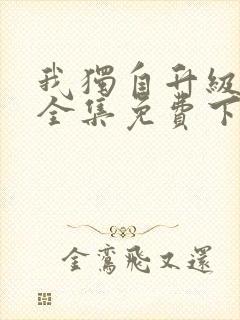 我獨自升級
全集免費下
金鸞飛又還